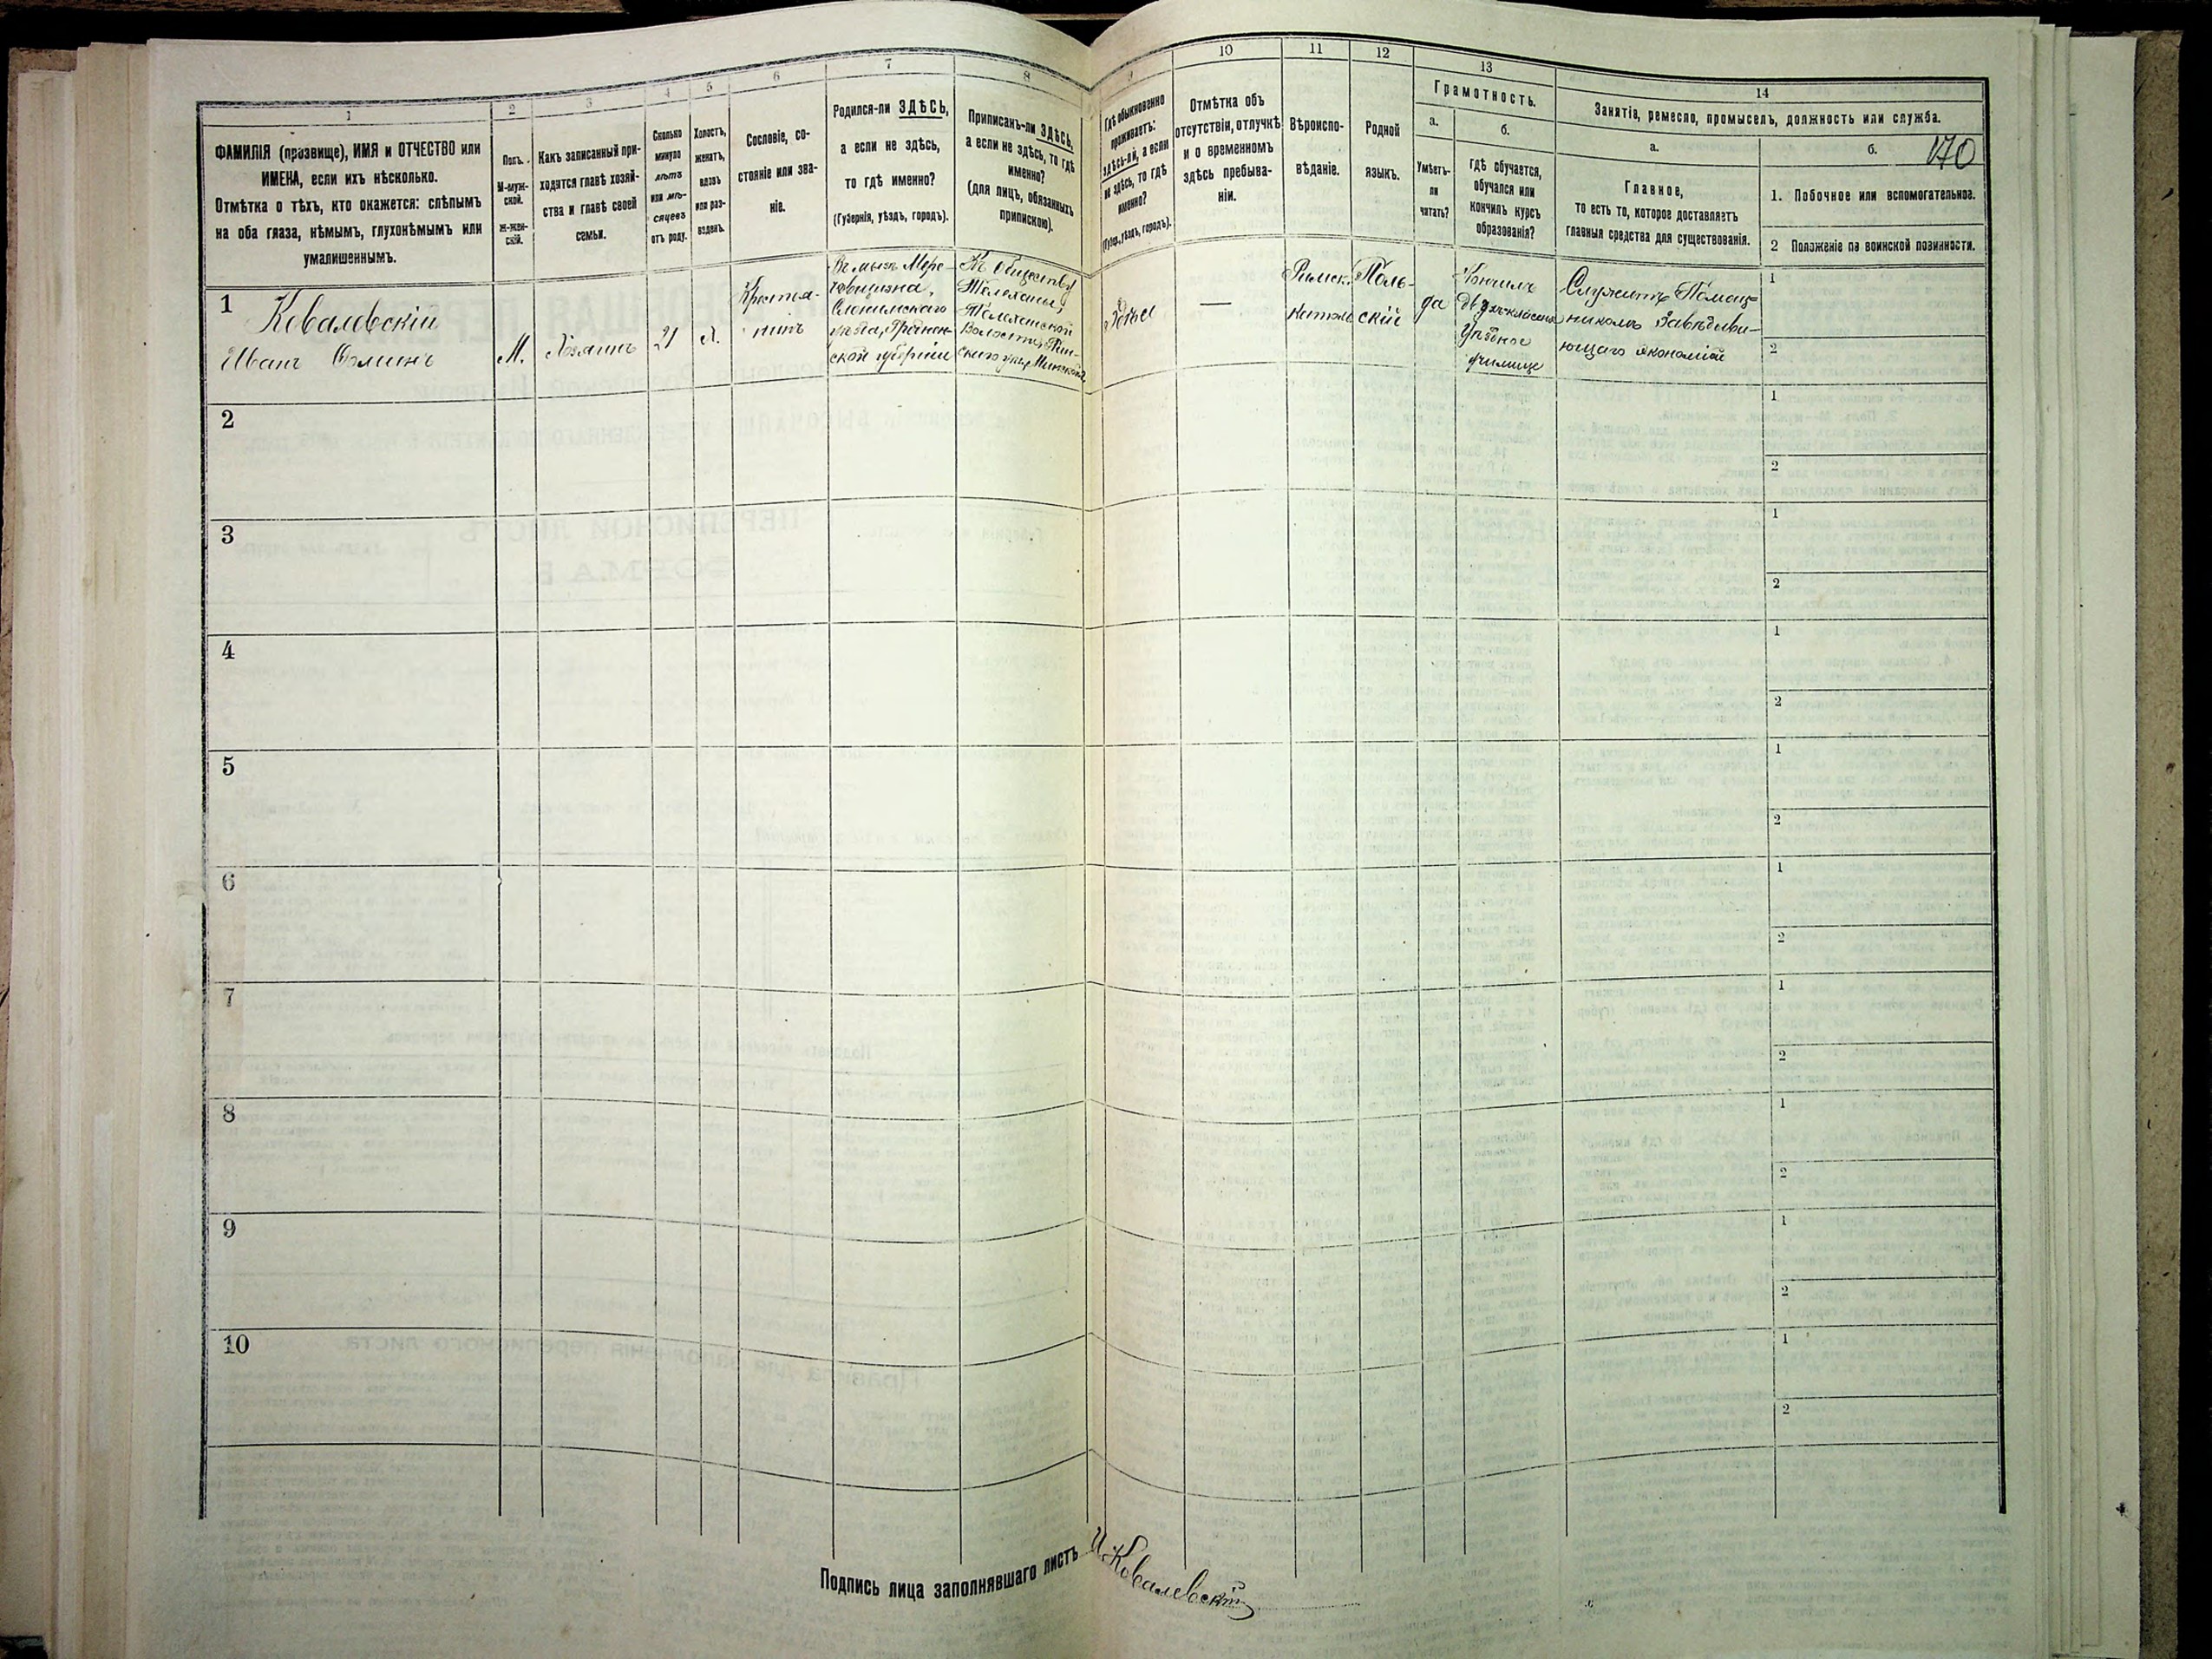 1
2
3
4
5
6
7
8
9
10
11
12
13
14
ФАМИЛІЯ (прозвище), ИМЯ и ОТЧЕСТВО или
ИМЕНА, если ихъ нѣсколько.
Отмѣтка о тѣхъ, кто окажется: слѣпымъ
на оба глаза, нѣмымъ, глухонѣмымъ или
умалишеннымъ.
Полъ.
М-муж-
ской.
Ж-жен-
скій.
Какъ записанный при-
ходится главѣ хозяй-
ства и главѣ своей
семьи.
Сколько
минуло
лѣтъ
или мѣ-
сяцевъ
отъ роду.
Холостъ,
женатъ,
вдовъ
или раз-
веденъ.
Сословіе, со-
стояніе или зва-
ніе.
Родился-ли ЗДѢСЬ,
а если не здѣсь,
то гдѣ именно?
(Губернія, уѣздъ, городъ).
Приписанъ-ли ЗДѢСЬ,
а если не здѣсь, то гдѣ
именно?
(для лицъ, обязанныхъ
припискою).
Гдѣ обыкновенно
проживаетъ:
здѣсь-ли, а если
не здѣсь, то гдѣ
именно?
(Губер., уѣздъ, городъ).
Отмѣтка объ
отсутствіи, отлучкѣ
и о временномъ
здѣсь пребыва-
ніи.
Вѣроиспо-
вѣданіе.
Родной
языкъ.
Грамотность.
а.
Умѣетъ-
ли
читать?
б.
гдѣ обучается,
обучался или
кончилъ курсъ
образованія?
Занятіе, ремесло, промыселъ, должность или служба.
а.
Главное,
то есть то, которое доставляетъ
главныя средства для существованія.
б.
170
1. Побочное или вспомогательное.
2 Положеніе по воинской повинности.
1
Ковалевскій
Иванъ
М.
Хозяинъ
21
Х.
Крестья-
нинъ
Слонимскаго
уѣзда, Гроднен-
ской губерніи
Къ обществу
Телеханы,
Телеханской
Волости, Пин-
скаго уѣз. Минской
—
Римск.
Католи
Поль-
скій
да
Кончилъ
Двухклассное
Уѣздное
училище
Служитъ Помощ-
никомъ Завѣдыва-
ющаго экономіей
1
2
2
1
2
3
1
2
4
1
2
5
1
2
6
1
2
7
1
2
8
1
2
9
1
2
10
1
2
Подпись лица заполнявшаго листъ И. Ковалевскій